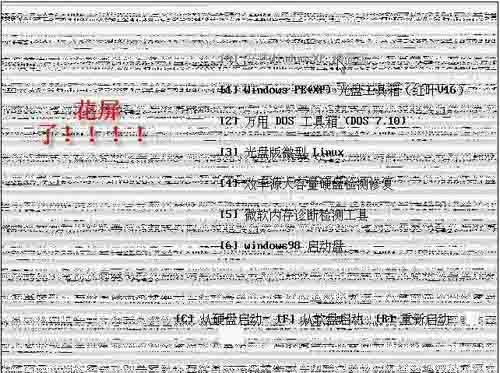 [1] Windows PE(XP) 光盘工具箱(红叶V16)
花屏
了！！！！
[2] 万用 DOS 工具箱 (DOS 7.10)
[3] 光盘版微型 Linux
[4] 效率源大容量硬盘检测修复
[5] 微软内存诊断检测工具
[6] windows98 启动盘
[C] 从硬盘启动 [F] 从软盘启动 [R] 重新启动